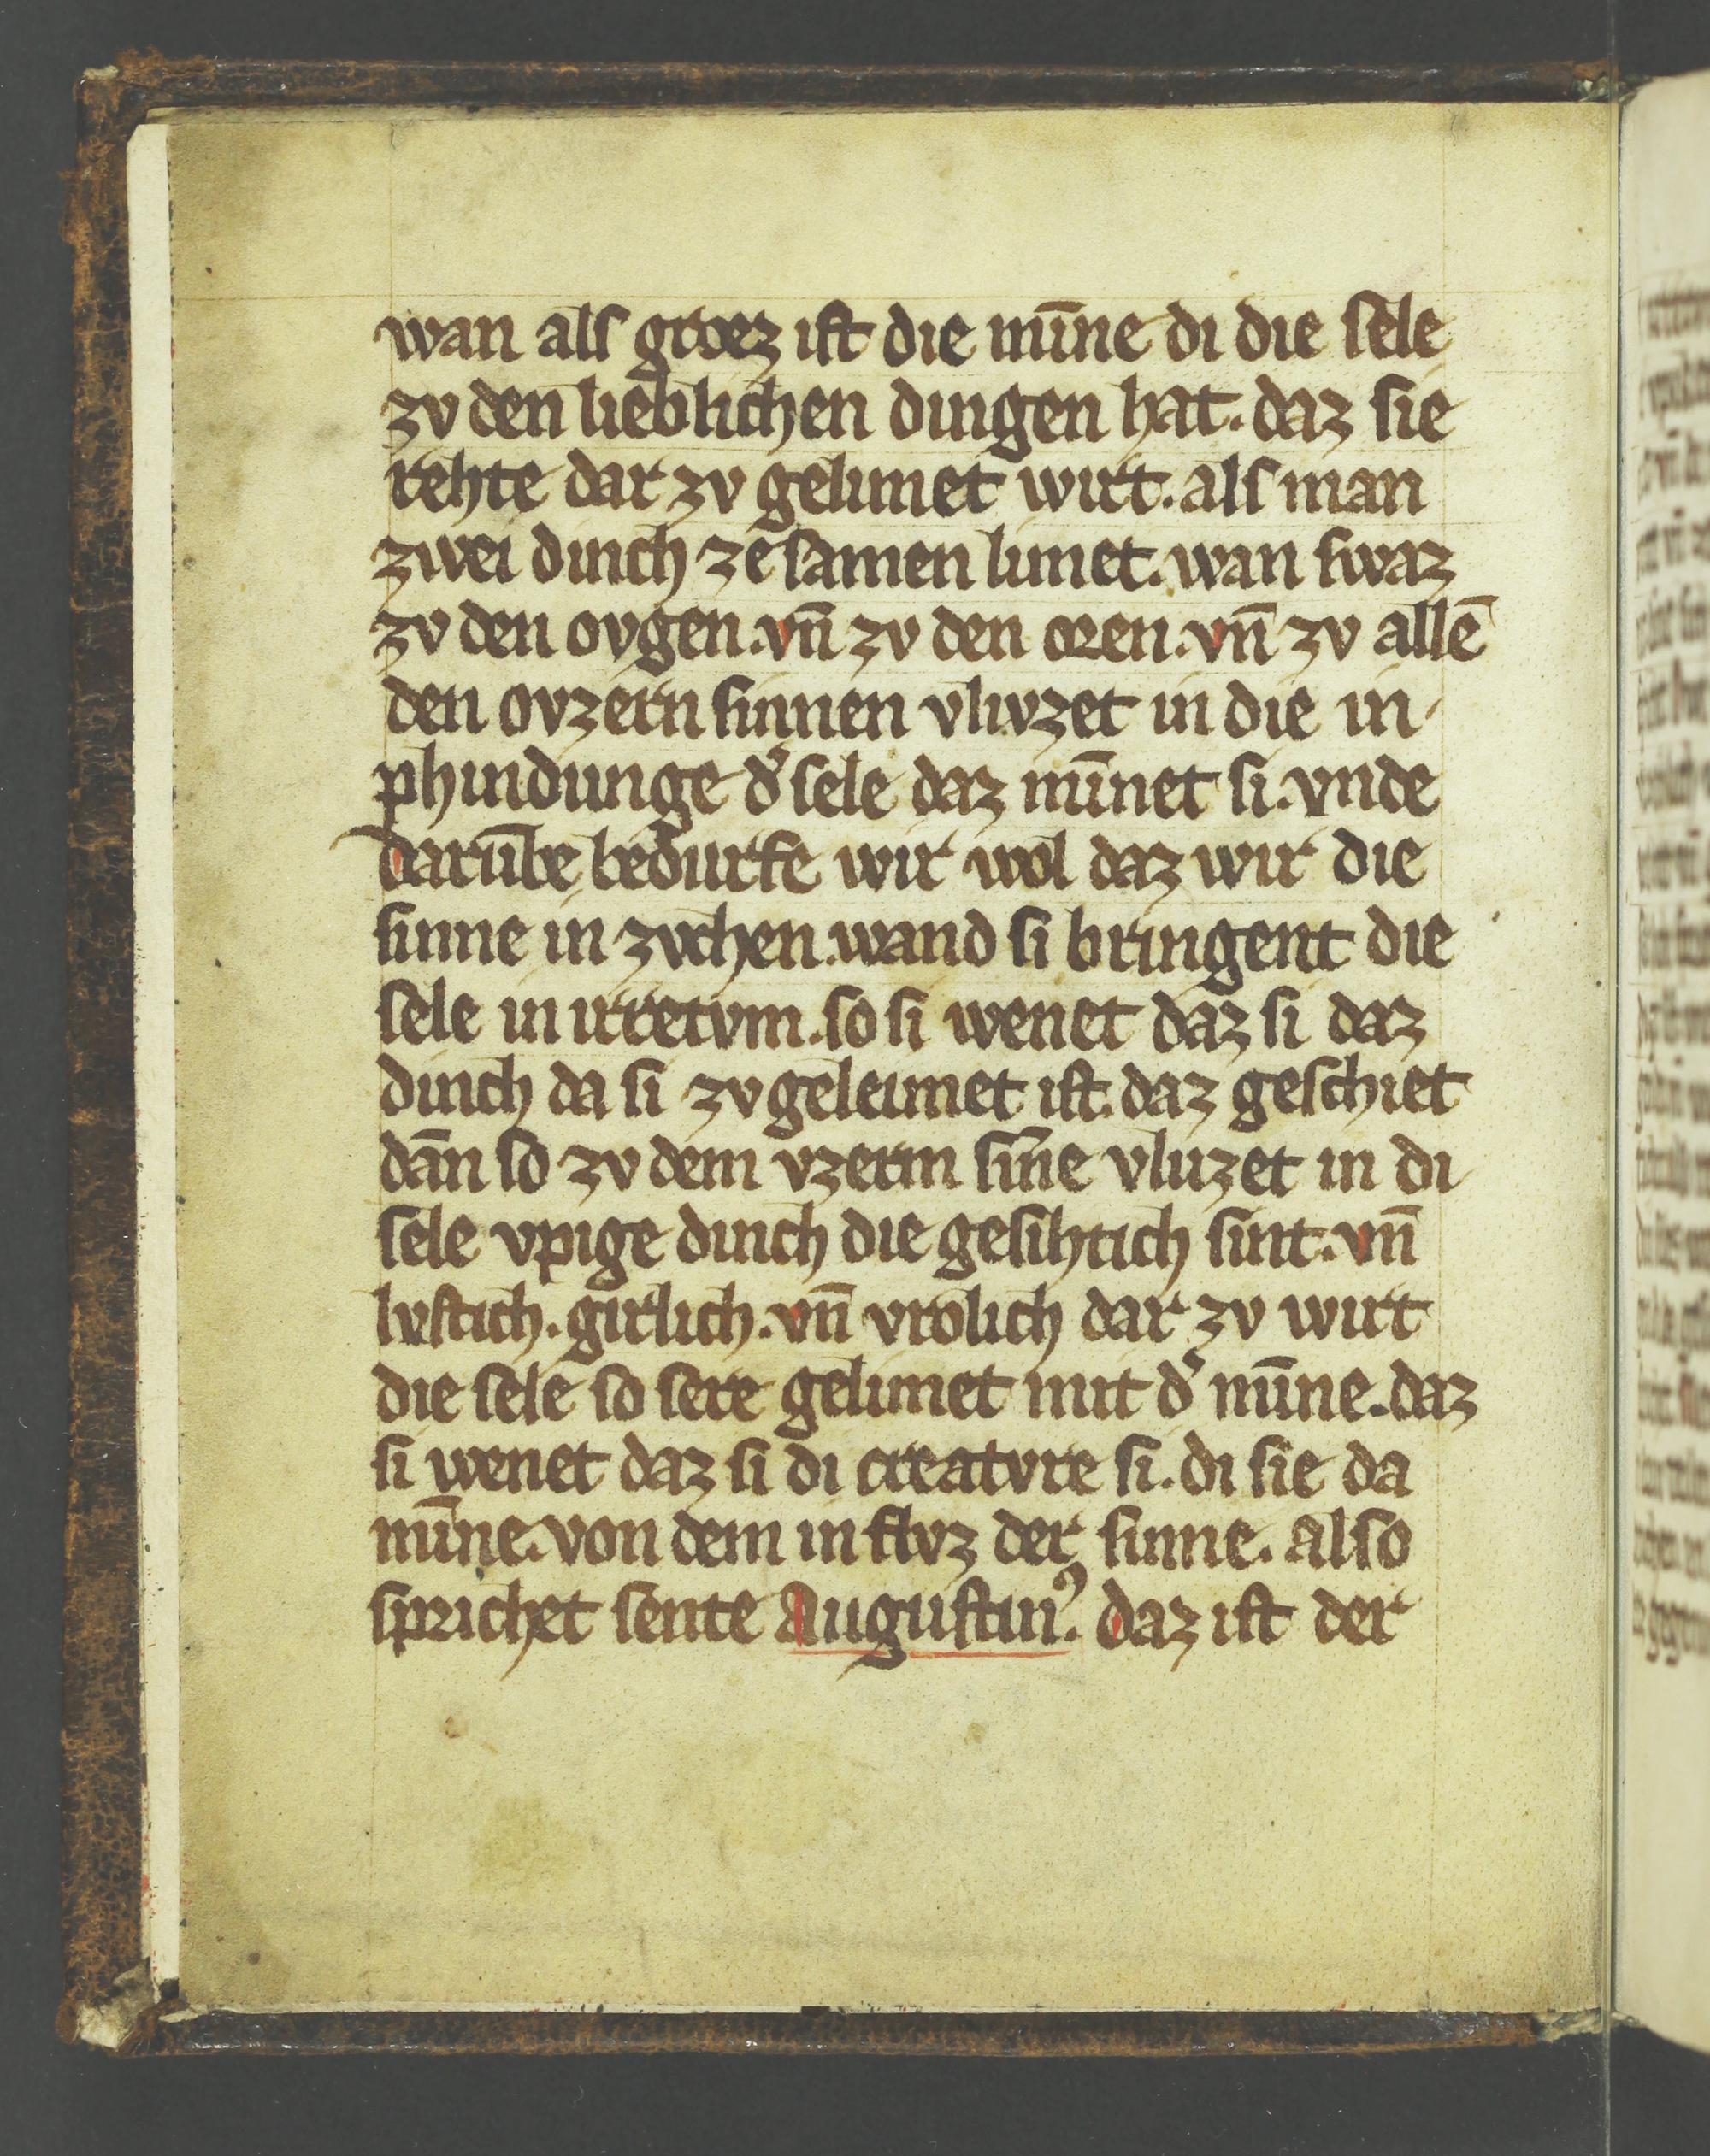 wan alſ groez iſt die mīne di die ſele
zv den lieblichen dingen hat. daz ſie
rehte dar zv gelimet wirt. alſ man
zwei dinch ze ſamen limet. wan ſwaz
zv den ovgen. vn̄ zv den oren. vn̄ zv allē
den ovzern ſinnen vlivzet in die in
phindunge d͛ ſele daz mīnet ſi. vnde
darūbe bedurfe wir wol daz wir die
ſinne in zvchen. wand ſi bringent die
ſele in irretvm. ſo ſi wenet daz ſi daz
dinch da ſi zv geleimet iſt. daz geſchiet
dān ſo zv dem vzerm ſīne vluzet in di
ſele vpige dinch die geſihtich ſint. vn̄
lvſtich. girlich. vn̄ vrolich dar zv wirt
die ſele ſo ſere gelimet mit d͛ mīne. daz
ſi wenet daz ſi di creatvre ſi. di ſie da
mīne. von dem in flvz der ſinne. alſo
ſprichet ſente Auguſtinꝰ. daz iſt der